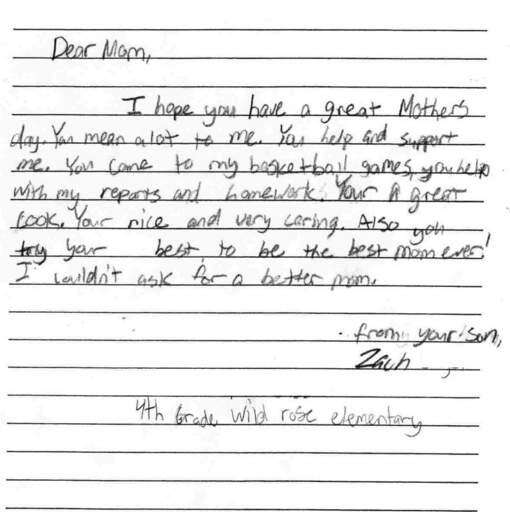 Dear Mom,
I hope you have a great Mothers
day. You mean alot to me. You help and support
me. You came to my basketball games, you help
with my reports and homework. Your A great
cook. Your nice and very caring. Also you
try your best to be the best mom ever!
I couldn't ask for a better mom.
from your son,
Zach
4th Grade Wild rose elementary